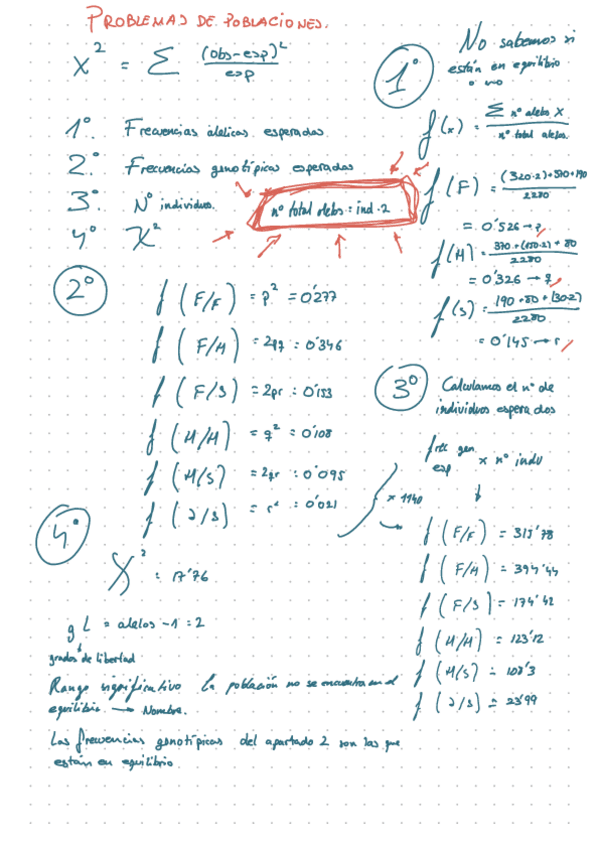 PROBLEMAS DE POBLACIONES.
X² = Σ (obs-esp)² / esp
1º. Frecuencias álelicas esperadas
2º. Frecuencias genotípicas esperadas
3º. Nº individuos.
nº total alelos = ind · 2
4º X².
1º
No sabemos si
están en equilibrio
o no
f(x) = Σ nº alelos X / nº total alelos.
f(F) = (320·2)+370+190 / 2280
= 0'526 → p
f(M) = 370+(150·2)+80 / 2280
= 0'326 → q
f(S) = 190+80+(30·2) / 2280
= 0'145 → r
2º
f(F/F) = p² = 0'277
f(F/M) = 2pq : 0'346
f(F/S) = 2pr : 0'153
f(M/M) = q² : 0'108
f(M/S) = 2qr : 0'095
f(S/S) = r² : 0'021
x 1140
3º
Calculamos el nº de
individuos esperados
frec gen esp x nº indiv
f(F/F) = 315'78
f(F/M) = 394'44
f(F/S) = 174'42
f(M/M) = 123'12
f(M/S) = 108'3
f(S/S) = 23'99
4º
X² : 17'76
gL = alelos -1 : 2
grados de libertad
Rango significativo la población no se encuentra en el
equilibrio → Nombre.
Las frecuencias genotípicas del apartado 2 son las que
están en equilibrio